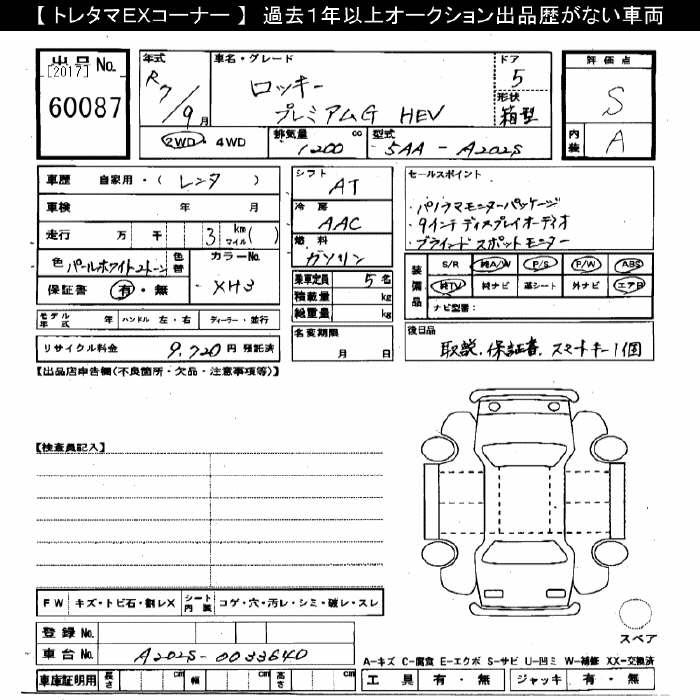 【 トレタマEXコーナー 】 過去１年以上オークション出品歴がない車両
出品 No.
[2017]
60087
年式
R7/9月
車名・グレード
ロッキー
プレミアムG HEV
ドア
5
形状
箱型
評価点
S
内装
A
2WD・4WD
排気量
1200 cc
型式
5AA-A202S
車歴 自家用・( レンタ )
車検 年 月
走行 万 千 3 km マイル( )
色 パールホワイト2トーン
色替
カラーNo.
XH3
保証書 有・無
モデル年式 年 ハンドル 左・右 ディーラー・並行
リサイクル料金 9,720 円 預託済
シフト
AT
冷房
AAC
燃料
ガソリン
乗車定員 5 名
積載量 kg
総重量 kg
名変期限
月 日
セールスポイント
・パノラマモニターパッケージ
・9インチディスプレイオーディオ
・ブラインドスポットモニター
装備品
S/R 純A/W P/S P/W ABS
純TV 純ナビ 革シート 外ナビ エアB
ナビ型番:
後日品
取説、保証書、スマートキー1個
【出品店申告欄(不良箇所・欠品・注意事項等)】
【検査員記入】
FW キズ・トビ石・割レX シート内装 コゲ・穴・汚レ・シミ・破レ・スレ
登録 No.
車台 No. A202S-0033640
車庫証明用 長さ cm 幅 cm 高さ cm
スペア
A-キズ C-腐食 E-エクボ S-サビ U-凹ミ W-補修 XX-交換済
工具 有・無 ジャッキ 有・無